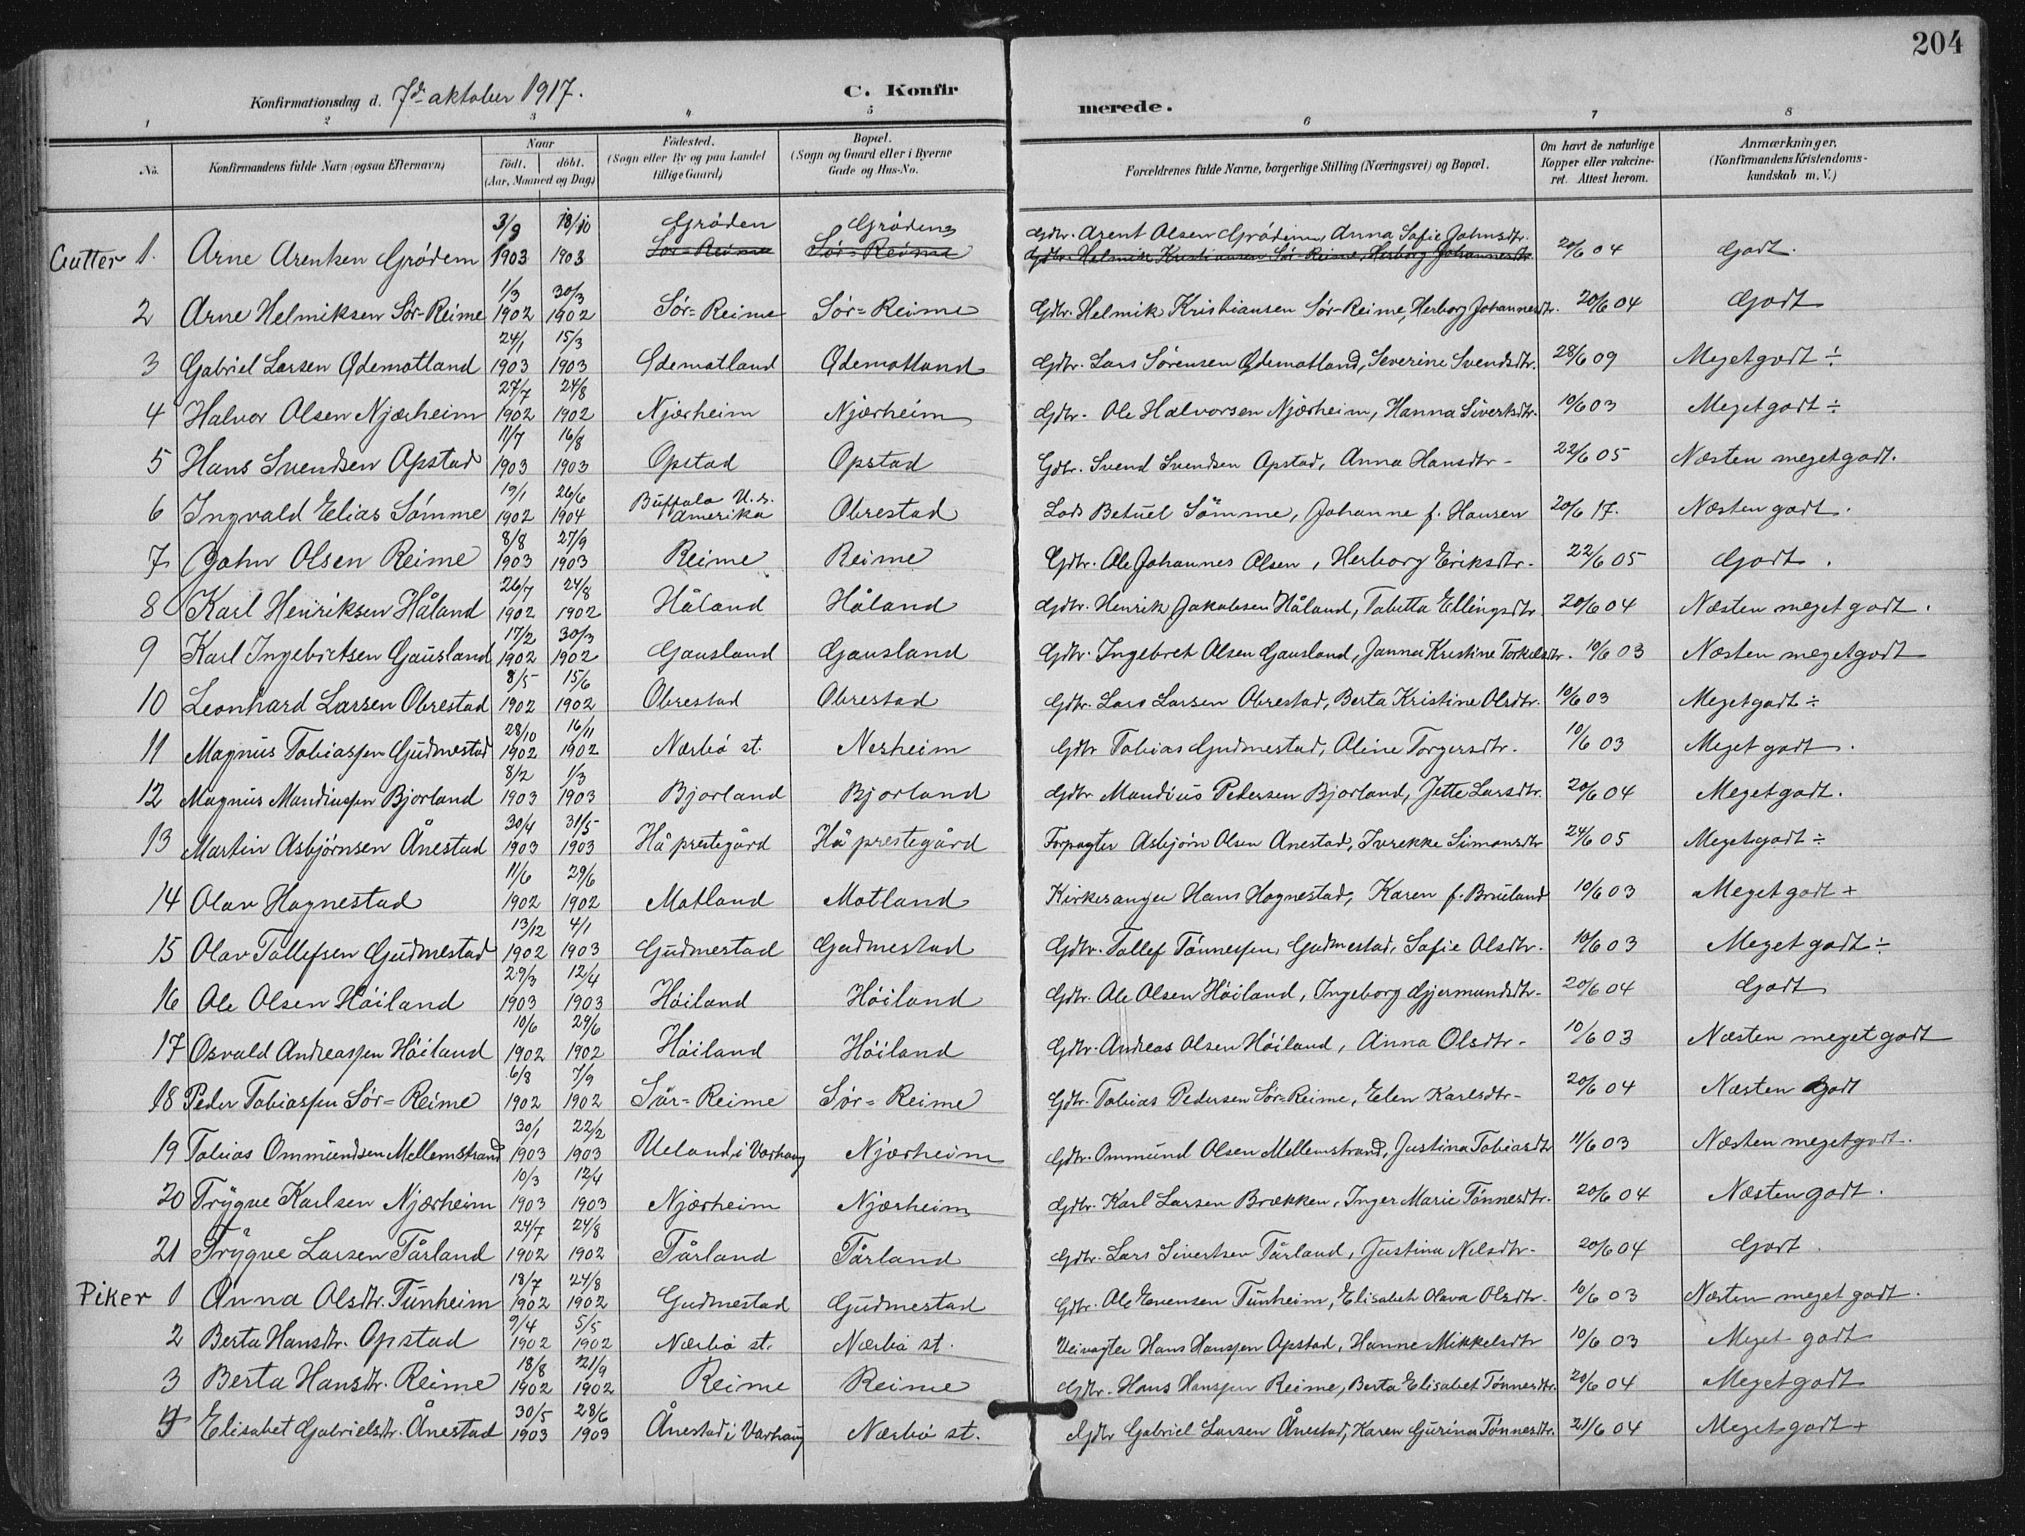 204
Konfirmationsdag d. 7de oktober 1917.
C. Konfirmerede.
1 2 3 4 5 6 7 8
No. Konfirmandens fulde Navn (ogsaa Efternavn) Naar født. døbt. (Aar, Maaned og Dag) Födested. (Sogn eller By og paa Landet tillige Gaard) Bopæl. (Sogn og Gaard eller i Byerne Gade og Hus-No. Forældrenes fulde Navne, borgerlige Stilling (Næringsvei) og Bopæl. Om havt de naturlige Kopper eller vaccineret. Attest herom. Anmærkninger. (Konfirmandens Kristendomskundskab m. V.)
Gutter 1. Arne Arentsen Grødem 3/9 1903 18/10 1903 Grøden Sør-Reime Grødem Sør-Reime Gdbr. Arent Olsen Grødem, Anna Sofie Johnsdtr. Gdbr. Helmik Kristiansen Sør-Reime, Herborg Johannesdtr. 20/6 04 Godt.
2 Arne Helmiksen Sör-Reime 1/3 1902 30/3 1902 Sör=Reime Sör=Reime Gdbr. Helmik Kristiansen Sør-Reime, Herborg Johannesdtr. 20/6 04 Godt
3 Gabriel Larsen Ødemotland 24/1 1903 15/3 1903 Ødemotland Ødemotland Gdbr. Lars Sørensen Ødemotland, Severine Svendsdtr. 28/6 09 Megetgodt ÷
4 Halvor Olsen Njærheim 27/7 1902 24/8 1902 Njærheim Njærheim Gdbr. Ole Halvorsen Njærheim, Hanna Sivertsdtr. 10/6 03 Megetgodt ÷
5 Hans Svendsen Opstad 11/7 1903 16/8 1903 Opstad Opstad Gdbr. Svend Svendsen Opstad, Anna Hansdtr- 22/6 05 Næsten megetgodt.
6 Ingvald Elias Sömme 19/1 1902 26/6 1904 Buffalo U.S. Amerika Obrestad Lods Betuel Sömme, Johanne f. Hansen 20/6 17. Næsten godt.
7 John Olsen Reime 8/8 1903 27/9 1903 Reime Reime Gdbr. Ole Johannes Olsen, Herborg Eriksdtr- 22/6 05 Godt.
8 Karl Henriksen Håland 26/7 1902 24/8 1902 Håland Håland Gdbr. Henrik Jakobsen Håland, Tabitta Ellingsdtr 20/6 04 Næsten meget godt.
9 Karl Ingebretsen Gausland 17/2 1902 30/3 1902 Gausland Gausland Gdbr. Ingebret Olsen Gausland, Janna Kristine Torkelsdtr. 10/6 03 Næsten megetgodt
10 Leonhard Larsen Obrestad 8/5 1902 15/6 1902 Obrestad Obrestad Gdbr. Lars Larsen Obrestad, Berta Kristine Olsdtr. 10/6 03 Megetgodt ÷
11 Magnus Tobiassen Gudmestad 28/10 1902 16/11 1902 Nærbö st. Nesheim Gdbr Tobias Gudmestad, Oline Torgersdtr. 10/6 03 Meget godt.
12 Magnus Mandiussen Bjorland 8/2 1903 1/3 1903 Bjorland Bjorland Gdbr Mandius Pedersen Bjorland, Jette Larsdtr. 20/6 04 Megetgodt.
13 Martin Asbjørnsen Ånestad 30/4 1903 31/5 1903 Hå prestegård Hå prestegård Forpagter Asbjørn Olsen Ånestad, Ivrekke Simonsdtr 24/6 05 Megetgodt ÷
14 Olav Hognestad 11/6 1902 29/6 1902 Motland Motland Kirkesanger Hans Hognestad, Karen f. Brueland 10/6 03 Meget godt +
15 Olav Tollefsen Gudmestad 13/12 1902 4/1 1903 Gudmestad Gudmestad Gdbr. Tollef Tönnessen, Gudmestad, Sofie Olsdtr. 10/6 03 Meget godt ÷
16 Ole Olsen Höiland 29/3 1903 12/4 1903 Höiland Höiland Gdbr. Ole Olsen Höiland, Ingeborg Gjermundsdtr- 20/6 04 Godt
17 Osvald Andreassen Höiland 10/6 1902 29/6 1902 Höiland Höiland Gdbr. Andreas Olsen Höiland, Anna Olsdtr- 10/6 03 Næsten meget godt
18 Peder Tobiassen Sör=Reime 6/8 1902 7/9 1902 Sör=Reime Sör=Reime Gdbr. Tobias Pedersen Sör=Reime, Elen Karlsdtr- 20/6 04 Næsten Godt
19 Tobias Ommundsen Mellemstrand 30/1 1903 22/2 1903 Ueland i Varhaug Njærheim Gdbr. Ommund Olsen Mellemstrand, Justina Tobiasdtr 11/6 03 Næsten megetgodt.
20 Trygve Karlsen Njærheim 10/3 1903 12/4 1903 Njærheim Njærheim Gdbr. Karl Larsen Brækken, Inger Marie Tönnesdtr. 20/6 04 Næsten godt.
21 Trygve Larsen Tårland 24/7 1902 24/8 1902 Tårland Tårland Gdbr. Lars Sivertsen Tårland, Justina Nilsdtr- 20/6 04 Godt.
Piker 1 Anna Olsdtr. Tunheim 18/7 1902 24/8 1902 Gudmestad Gudmestad Gdbr. Ole Evensen Tunheim, Elisabet Olava Olsdtr. 10/6 03 Næsten meget godt.
2 Berta Hansdtr. Opstad 9/4 1902 5/5 1902 Nærbö st. Nærbö st. Veivogter Hans Hanssen Opstad, Hanne Mikkelsdtr 10/6 03 Meget godt
3 Berta Hansdtr. Reime 18/8 1902 21/9 1902 Reime Reime Gdbr. Hans Hanssen Reime, Berta Elisabet Tönnesdtr. 20/6 04 Megetgodt
4 Elisabet Gabrielsdtr. Ånestad 30/5 1903 28/6 1903 Ånestad i Varhaug Nærbö st. Gdbr Gabriel Larsen Ånestad, Karen Gurina Tönnesdtr. 21/6 04 Megetgodt +